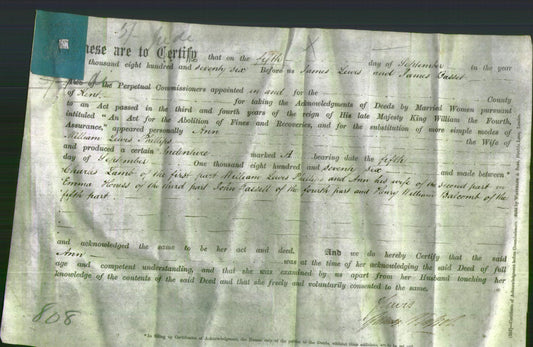 These are to Certify that on the fifth day of September in the year
thousand eight hundred and seventy six Before us James Lewis and James Basset
of the Perpetual Commissioners appointed in and for the County
of Kent for taking the Acknowledgments of Deeds by Married Women pursuant
to an Act passed in the third and fourth years of the reign of His late Majesty King William the Fourth,
intituled "An Act for the Abolition of Fines and Recoveries, and for the substitution of more simple modes of
Assurance," appeared personally Ann
William Lewis Philips the Wife of
and produced a certain Indenture marked A bearing date the fifth
day of September One thousand eight hundred and seventy six and made between
Charles Lamb of the first part William Lewis Philips and Ann his wife of the second part
Emma Howes of the third part John Tassell of the fourth part and Henry William Balcomb of the
fifth part
and acknowledged the same to be her act and deed. And we do hereby Certify that the said
Ann was at the time of her acknowledging the said Deed of full
age and competent understanding, and that she was examined by us apart from her Husband touching her
knowledge of the contents of the said Deed and that she freely and voluntarily consented to the same.
808